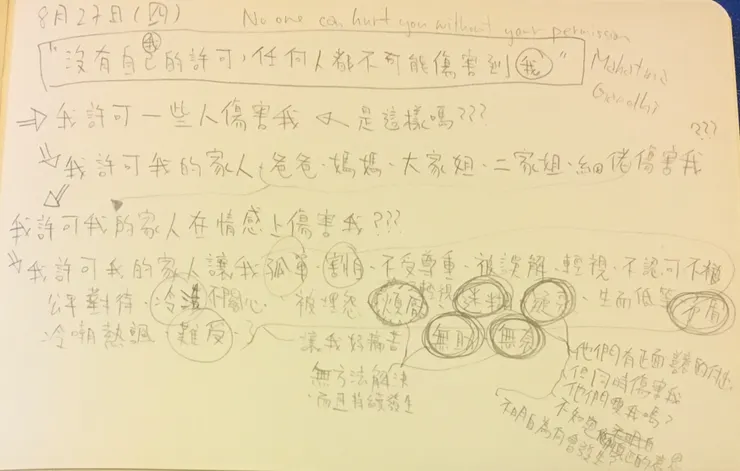 8月27日(四) No one can hurt you without your permission
"沒有自己的許可，任何人都不可能傷害到我" Mahatma
我
Gandhi
⇒ 我許可一些人傷害我 ← 是這樣嗎???
我許可我的家人，爸爸、媽媽、大家姐、二家姐、細佬傷害我 ???
我許可我的家人在情感上傷害我???
我許可我的家人讓我孤單、不受尊重、被誤解、輕視、不認可、不被
公平對待、冷淡 不關心、被埋怨 煩 輕視 生而低等
冷嘲熱諷、離反、 讓我好痛苦 無助 無奈 他們有正面善意的付出
無方法解決 但同時傷害我
而且持續發生 他們愛我嗎?
不知道
不明白為何會發生